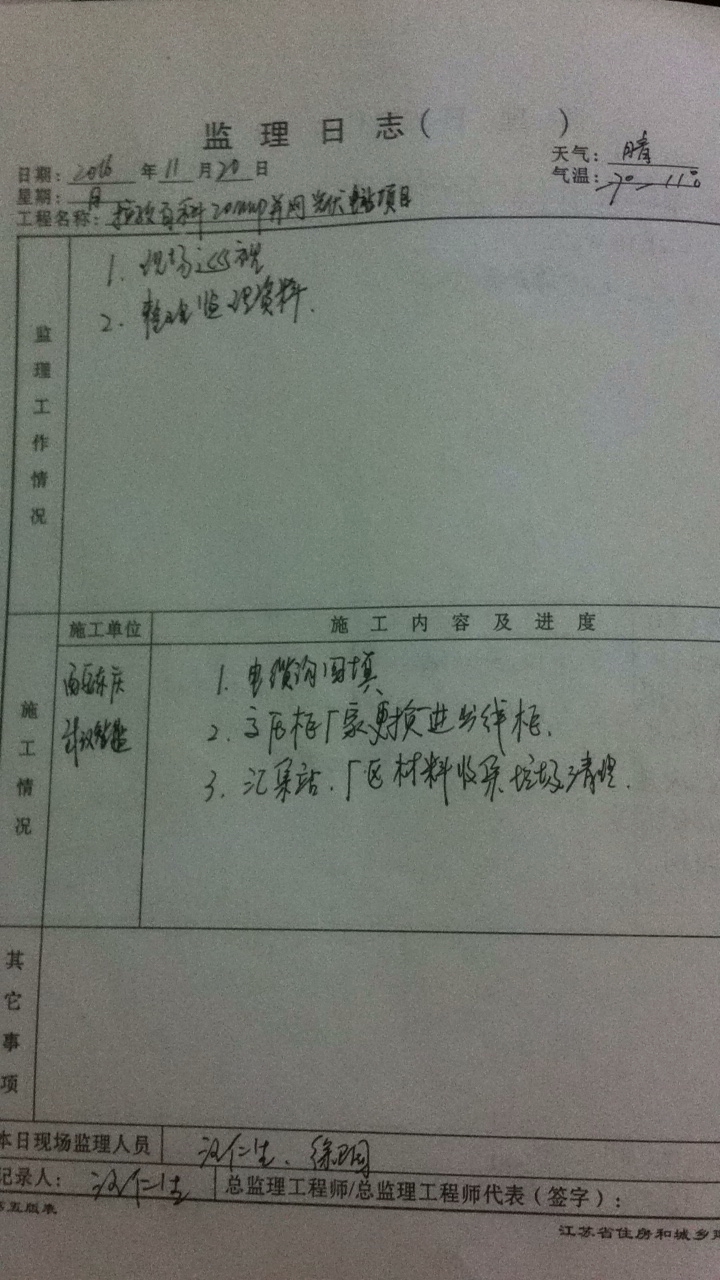 监 理 日 志 （ ）
日期： 2016 年 11 月 20 日
天气： 晴
星期： 日
气温： 7° 11°
工程名称： 20MWP并网光伏电站项目
监理工作情况
1. 现场巡视
2. 整理监理资料.
施工单位
施 工 内 容 及 进 度
施工情况
1. 电缆沟回填
2. 高压柜厂家更换进出线柜.
3. 汇集站.厂区材料收集垃圾清理.
其它事项
本日现场监理人员
汉仁生、徐卫国
记录人： 汉仁生
总监理工程师/总监理工程师代表（签字）：
第五版表
江苏省住房和城乡